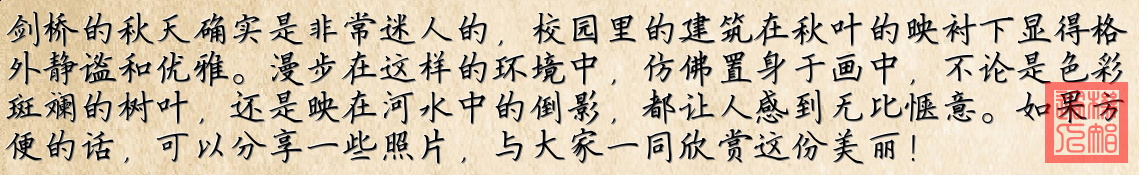 剑桥的秋天确实是非常迷人的，校园里的建筑在秋叶的映衬下显得格
外静谧和优雅。漫步在这样的环境中，仿佛置身于画中，不论是色彩
斑斓的树叶，还是映在河水中的倒影，都让人感到无比惬意。如果方
便的话，可以分享一些照片，与大家一同欣赏这份美丽！